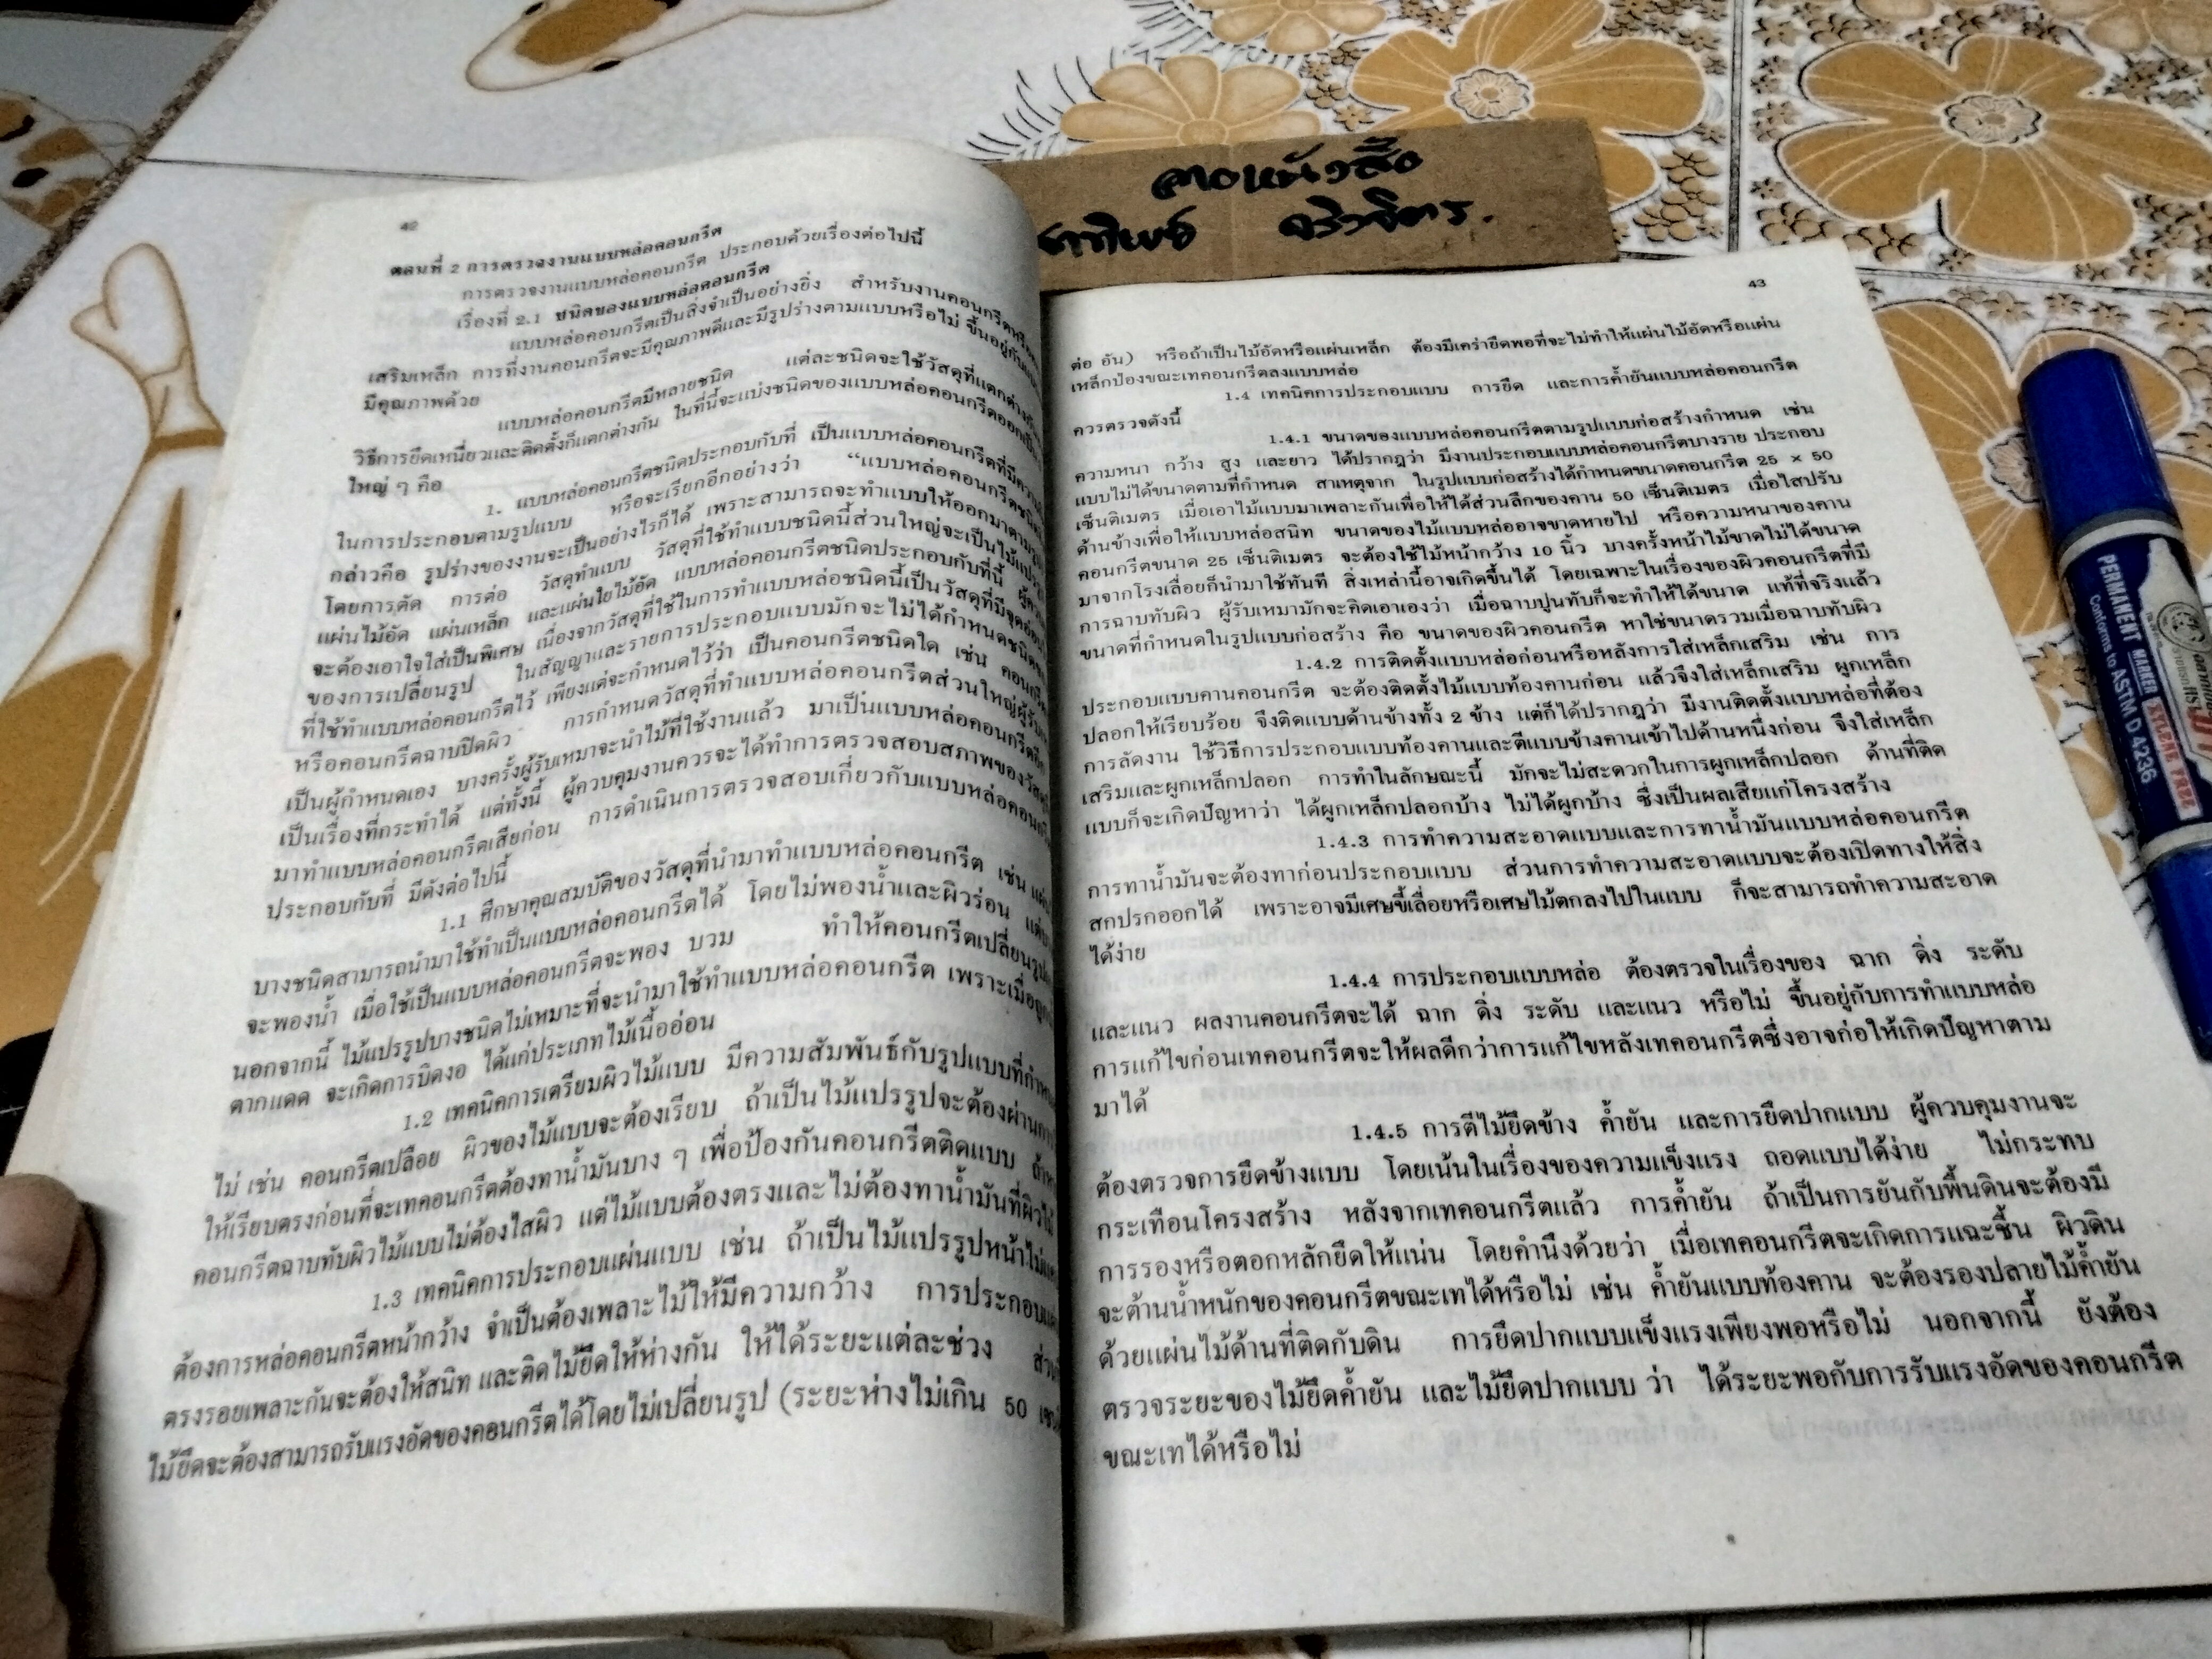 42
ตอนที่ 2 การตรวจงานแบบหล่อคอนกรีต
การตรวจงานแบบหล่อคอนกรีต ประกอบด้วยเรื่องต่อไปนี้
เรื่องที่ 2.1 ชนิดของแบบหล่อคอนกรีต
แบบหล่อคอนกรีตเป็นสิ่งจำเป็นอย่างยิ่ง สำหรับงานคอนกรีต
เสริมเหล็ก การที่งานคอนกรีตจะมีคุณภาพดีและมีรูปร่างตามแบบหรือไม่ ขึ้นอยู่กับ
มีคุณภาพด้วย
แบบหล่อคอนกรีตมีหลายชนิด แต่ละชนิดจะใช้วัสดุที่แตกต่างกัน
วิธีการยึดเหนี่ยวและติดตั้งก็แตกต่างกัน ในที่นี้จะแบ่งชนิดของแบบหล่อคอนกรีตออกเป็น
ใหญ่ ๆ คือ
1. แบบหล่อคอนกรีตชนิดประกอบกับที่ เป็นแบบหล่อคอนกรีตที่มี
ในการประกอบตามรูปแบบ หรือจะเรียกอีกอย่างว่า “แบบหล่อคอนกรีต
กล่าวคือ รูปร่างของงานจะเป็นอย่างไรก็ได้ เพราะสามารถจะทำแบบให้ออกมาตาม
โดยการตัด การต่อ วัสดุทำแบบ วัสดุที่ใช้ทำแบบชนิดนี้ส่วนใหญ่จะเป็นไม้
แผ่นไม้อัด แผ่นเหล็ก และแผ่นใยไม้อัด แบบหล่อคอนกรีตชนิดประกอบกับที่นี้
จะต้องเอาใจใส่เป็นพิเศษ เนื่องจากวัสดุที่ใช้ในการทำแบบหล่อชนิดนี้เป็นวัสดุที่มี
ของการเปลี่ยนรูป ในสัญญาและรายการประกอบแบบมักจะไม่ได้กำหนด
ที่ใช้ทำแบบหล่อคอนกรีตไว้ เพียงแต่จะกำหนดไว้ว่า เป็นคอนกรีตชนิดใด เช่น
หรือคอนกรีตฉาบปิดผิว การกำหนดวัสดุที่ทำแบบหล่อคอนกรีตส่วนใหญ่
เป็นผู้กำหนดเอง บางครั้งผู้รับเหมาจะนำไม้ที่ใช้งานแล้ว มาเป็นแบบหล่อคอนกรีตอีก
เป็นเรื่องที่กระทำได้ แต่ทั้งนี้ ผู้ควบคุมงานควรจะได้ทำการตรวจสอบสภาพของ
มาทำแบบหล่อคอนกรีตเสียก่อน การดำเนินการตรวจสอบเกี่ยวกับแบบหล่อ
ประกอบกับที่ มีดังต่อไปนี้
1.1 ศึกษาคุณสมบัติของวัสดุที่นำมาทำแบบหล่อคอนกรีต เช่น
บางชนิดสามารถนำมาใช้ทำเป็นแบบหล่อคอนกรีตได้ โดยไม่พองน้ำและผิวร่อน
จะพองน้ำ เมื่อใช้เป็นแบบหล่อคอนกรีตจะพอง บวม ทำให้คอนกรีตเปลี่ยนรูป
นอกจากนี้ ไม้แปรรูปบางชนิดไม่เหมาะที่จะนำมาใช้ทำแบบหล่อคอนกรีต เพราะเมื่อ
ตากแดด จะเกิดการบิดงอ ได้แก่ประเภทไม้เนื้ออ่อน
1.2 เทคนิคการเตรียมผิวไม้แบบ มีความสัมพันธ์กับรูปแบบที่
ไม่ เช่น คอนกรีตเปลือย ผิวของไม้แบบจะต้องเรียบ ถ้าเป็นไม้แปรรูปจะต้องผ่าน
ให้เรียบตรงก่อนที่จะเทคอนกรีตต้องทาน้ำมันบาง ๆ เพื่อป้องกันคอนกรีตติดแบบ
คอนกรีตฉาบทับผิวไม้แบบไม่ต้องไสผิว แต่ไม้แบบต้องตรงและไม่ต้องทาน้ำมันที่ผิว
1.3 เทคนิคการประกอบแผ่นแบบ เช่น ถ้าเป็นไม้แปรรูปหน้า
ต้องการหล่อคอนกรีตหน้ากว้าง จำเป็นต้องเพลาะไม้ให้มีความกว้าง การประกอบ
ตรงรอยเพลาะกันจะต้องให้สนิท และติดไม้ยึดให้ห่างกัน ให้ได้ระยะแต่ละช่วง
ไม้ยึดจะต้องสามารถรับแรงอัดของคอนกรีตได้โดยไม่เปลี่ยนรูป (ระยะห่างไม่เกิน 50
ลาอหนังสือ
43
ต่อ อัน) หรือถ้าเป็นไม้อัดหรือแผ่นเหล็ก ต้องมีเคร่ายึดพอที่จะไม่ทำให้แผ่นไม้อัดหรือแผ่น
เหล็กป่องขณะเทคอนกรีตลงแบบหล่อ
1.4 เทคนิคการประกอบแบบ การยึด และการค้ำยันแบบหล่อคอนกรีต
ควรตรวจดังนี้
1.4.1 ขนาดของแบบหล่อคอนกรีตตามรูปแบบก่อสร้างกำหนด เช่น
ความหนา กว้าง สูง และยาว ได้ปรากฏว่า มีงานประกอบแบบหล่อคอนกรีตบางราย ประกอบ
แบบไม่ได้ขนาดตามที่กำหนด สาเหตุจาก ในรูปแบบก่อสร้างได้กำหนดขนาดคอนกรีต 25 × 50
เซ็นติเมตร เมื่อเอาไม้แบบมาเพลาะกันเพื่อให้ได้ส่วนลึกของคาน 50 เซ็นติเมตร เมื่อไสปรับ
ด้านข้างเพื่อให้แบบหล่อสนิท ขนาดของไม้แบบหล่ออาจขาดหายไป หรือความหนาของคาน
คอนกรีตขนาด 25 เซ็นติเมตร จะต้องใช้ไม้หน้ากว้าง 10 นิ้ว บางครั้งหน้าไม้ขาดไม่ได้ขนาด
มาจากโรงเลื่อยก็นำมาใช้ทันที สิ่งเหล่านี้อาจเกิดขึ้นได้ โดยเฉพาะในเรื่องของผิวคอนกรีตที่มี
การฉาบทับผิว ผู้รับเหมามักจะคิดเอาเองว่า เมื่อฉาบปูนทับก็จะทำให้ได้ขนาด แท้ที่จริงแล้ว
ขนาดที่กำหนดในรูปแบบก่อสร้าง คือ ขนาดของผิวคอนกรีต หาใช่ขนาดรวมเมื่อฉาบทับผิว
1.4.2 การติดตั้งแบบหล่อก่อนหรือหลังการใส่เหล็กเสริม เช่น การ
ประกอบแบบคานคอนกรีต จะต้องติดตั้งไม้แบบท้องคานก่อน แล้วจึงใส่เหล็กเสริม ผูกเหล็ก
ปลอกให้เรียบร้อย จึงติดแบบด้านข้างทั้ง 2 ข้าง แต่ก็ได้ปรากฏว่า มีงานติดตั้งแบบหล่อที่ต้อง
การลัดงาน ใช้วิธีการประกอบแบบท้องคานและตีแบบข้างคานเข้าไปด้านหนึ่งก่อน จึงใส่เหล็ก
เสริมและผูกเหล็กปลอก การทำในลักษณะนี้ มักจะไม่สะดวกในการผูกเหล็กปลอก ด้านที่ติด
แบบก็จะเกิดปัญหาว่า ได้ผูกเหล็กปลอกบ้าง ไม่ได้ผูกบ้าง ซึ่งเป็นผลเสียแก่โครงสร้าง
1.4.3 การทำความสะอาดแบบและการทาน้ำมันแบบหล่อคอนกรีต
การทาน้ำมันจะต้องทาก่อนประกอบแบบ ส่วนการทำความสะอาดแบบจะต้องเปิดทางให้สิ่ง
สกปรกออกได้ เพราะอาจมีเศษขี้เลื่อยหรือเศษไม้ตกลงไปในแบบ ก็จะสามารถทำความสะอาด
ได้ง่าย
1.4.4 การประกอบแบบหล่อ ต้องตรวจในเรื่องของ ฉาก ดิ่ง ระดับ
และแนว ผลงานคอนกรีตจะได้ ฉาก ดิ่ง ระดับ และแนว หรือไม่ ขึ้นอยู่กับการทำแบบหล่อ
การแก้ไขก่อนเทคอนกรีตจะให้ผลดีกว่าการแก้ไขหลังเทคอนกรีตซึ่งอาจก่อให้เกิดปัญหาตาม
มาได้
1.4.5 การตีไม้ยึดข้าง ค้ำยัน และการยึดปากแบบ ผู้ควบคุมงานจะ
ต้องตรวจการยึดข้างแบบ โดยเน้นในเรื่องของความแข็งแรง ถอดแบบได้ง่าย ไม่กระทบ
กระเทือนโครงสร้าง หลังจากเทคอนกรีตแล้ว การค้ำยัน ถ้าเป็นการยันกับพื้นดินจะต้องมี
การรองหรือตอกหลักยึดให้แน่น โดยคำนึงด้วยว่า เมื่อเทคอนกรีตจะเกิดการแฉะชื้น ผิวดิน
จะต้านน้ำหนักของคอนกรีตขณะเทได้หรือไม่ เช่น ค้ำยันแบบท้องคาน จะต้องรองปลายไม้ค้ำยัน
ด้วยแผ่นไม้ด้านที่ติดกับดิน การยึดปากแบบแข็งแรงเพียงพอหรือไม่ นอกจากนี้ ยังต้อง
ตรวจระยะของไม้ยึดค้ำยัน และไม้ยึดปากแบบ ว่า ได้ระยะพอกับการรับแรงอัดของคอนกรีต
ขณะเทได้หรือไม่
PERMANENT MARKER XYLENE FREE
Conforms to ASTM D 4236